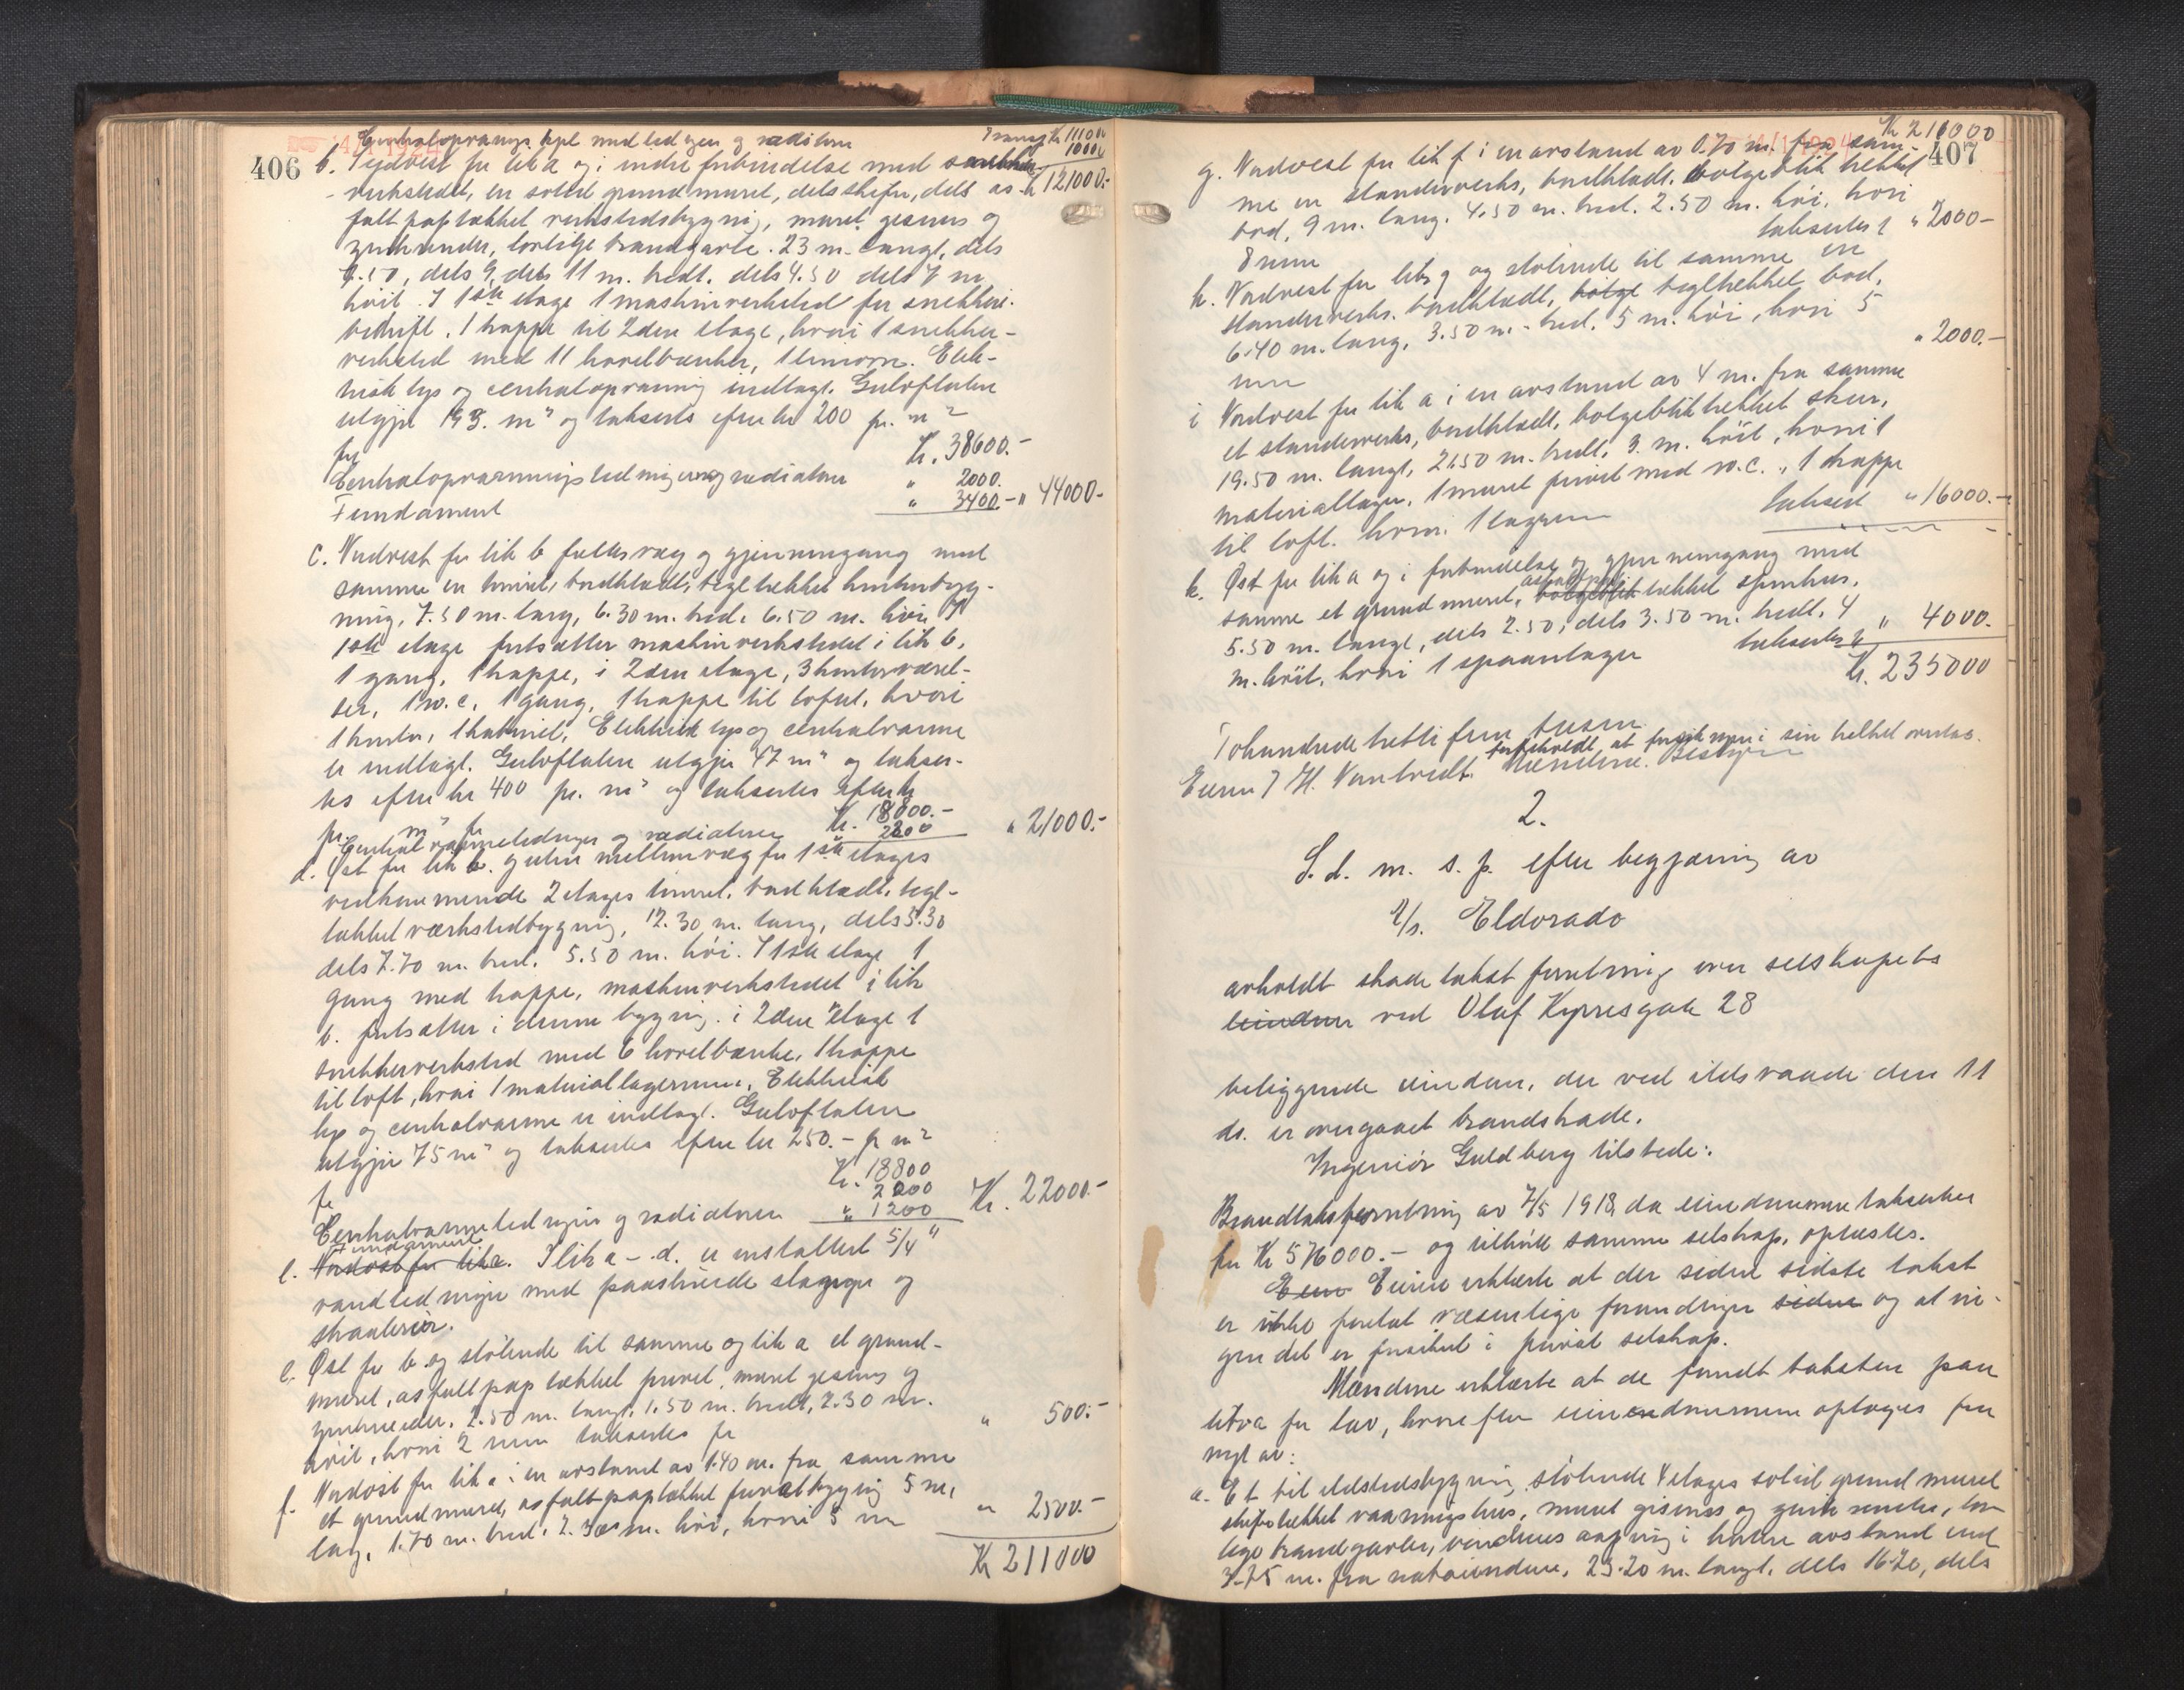 406
Centralopvarmings kjel med ledgen og radiatorer
Transp. Kr 111000
10000
b. Sydvest for lit a og i indre forbindelse med snekker
verkstedt, en solid grundmuret, dels skifer, dels as- Kr 121000.-
faltpaptækket verkstedsbygning, muret gesims og
zinkrender, lovlige brandgavle. 23 m. langt, dels
9.50, dels 9, dels 11 m. bredt. dels 4.50 dels 7 m
høit. I 1ste etage 1 maskinverksted for snekkeri-
bedrift. 1 trappe til 2den etage, hvori 1 snekker-
verksted med 11 høvelbænker, 1 limovn. Elek-
trisk lys og centralopvarming indlagt. Gulvflaten
utgjør 193. m² og takseres efter kr 200 pr. m²
for Kr. 38600.-
Centralopvarmningsledninger og radiatorer " 2000.
Fundament " 3400.- " 44000.-
c. Nordvest for lit b fælles væg og gjennemgang med
samme en tømret, bordklædt, tegltækket kontorbyg-
ning, 7.50 m. lang, 6.30 m. bred. 6.50 m. høi. I
1ste etage fortsætter maskinverkstedet i lit b,
1 gang, 1 trappe, i 2den etage, 3 kontorværel-
ser, 1 w.c. 1 gang, 1 trappe til loftet, hvori
1 kontor, 1 kabinet, Elektrisk lys og centralvarme
er indlagt. Gulvflaten utgjør 47 m² og takser-
es efter kr 400 pr. m² og takseres efter kr
pr. m² for Kr. 18800.-
Centralvarmeledninger og radiatorer 2200 " 21000.-
d. Øst for lit b. uten mellemvæg for 1ste etages
vedkommende 2 etages tømret, bordklædt, tegl-
tækket værkstedbygning, 12.30 m. lang, dels 5.30
dels 7.70 m. bred. 5.50 m. høi. I 1ste etage 1
gang med trappe, maskinverkstedet i lit
b. fortsætter i denne bygning. i 2den etage 1
snekkerverksted med 6 høvelbænke, 1 trappe
til loft, hvori 1 materiallagerrum, Elektrisk
lys og centralvarme er indlagt. Gulvflaten
utgjør 75 m² og takseres efter kr 250.- pr m²
for Kr. 18800
Centralvarmeledninger og radiatorer 2000 Kr. 22000.-
Fundament " 1200
e. Nordøst for lit a. I lit a - d. er installert 5/4"
vandledninger med paaskruede slanger og
straalerør.
e. Øst for b og støtende til samme og lit a et grund-
muret, asfaltpaptækket privet, muret gesims og
zinkrender. 2.50 m. langt, 1.50 m. bredt, 2.30 m.
høit, hvori 2 rum takseres for " 500.-
f. Nordøst for lit a i en avstand av 1.40 m. fra samme
et grundmuret, asfaltpaptækket privatbygning 5 m.
lag, 1.70 m. bred. 2.30 m. høi, hvori 5 rum " 2500.-
Kr 211000
407
Kr 211000
g. Nordvest for lit f i en avstand av 0.70 m. fra sam-
me en standerverks, bordklædt, bølgebliktækket
bod, 9 m. lang. 4.50 m. bred. 2.50 m. høi, hvori
8 rum takseres " 2000-
h. Nordvest for lit g og støtende til samme en
standerverks. bordklædt, bølge tegltækket bod,
6.40 m. lang, 3.50 m. bred. 5 m. høi, hvori 5
rum " 2000.-
i Nordvest for lit a i en avstand av 4 m. fra samme
et standerverks, bordklædt, bølgebliktækket skur,
19.50 m. langt, 21.50 m. bredt, 3. m. høit, hvori 1
materiallager, 1 muret privet med w.c., 1 trappe
til loft. hvori 1 lagerrum taksert " 16000.-
k. Øst for lit a og i forbindelse og gjennemgang med
samme et grundmuret, asfaltpap bølgeblik tækket sponhus,
5.50 m. langt, dels 2.50, dels 3.50 m. bredt. 4
m. høit, hvori 1 spaanlager takseres " 4000.
Kr. 235000
Tohundrede trettifem tusen
Eieren J H. Nantvedt. forbeholdt, at forsikringen i sin helhet overtas.
Mændene. Bestyrer
2.
S. d. m. s. p. efter begjæring av
A/s. Eldorado
avholdt skadetakst forretning over selskapets
eiendom ved Olaf Kyrresgate 28
beliggende eiendom, der ved ildsvaade den 11
ds. er overgaaet brandskade.
Ingeniør Guldberg tilstede:
Brandtakstforretning av 7/5 1918, da eiendommen takserters
for Kr 576000.- og tilhørte samme selskap, oplæstes.
Eien Eieren erklærte at der siden sidste takst
er ikke foretat væsentlige forandringer siden og at in-
gen del er forsikret i privat selskap.
Mændene erklærte at de fandt taksten paa
litra for lav, hvorefter eiendommen optages paa
nyt av:
a. Et til ildstedsbygning, støtende 4 etages solid grundmuret
skifertækket vaaningshus, muret gesims og zinkrender, lov-
lige brandgavler, vinduesaapning i kortere avstand end
3.75 m. fra naboeiendom, 23.20 m. langt, dels 16.20, dels